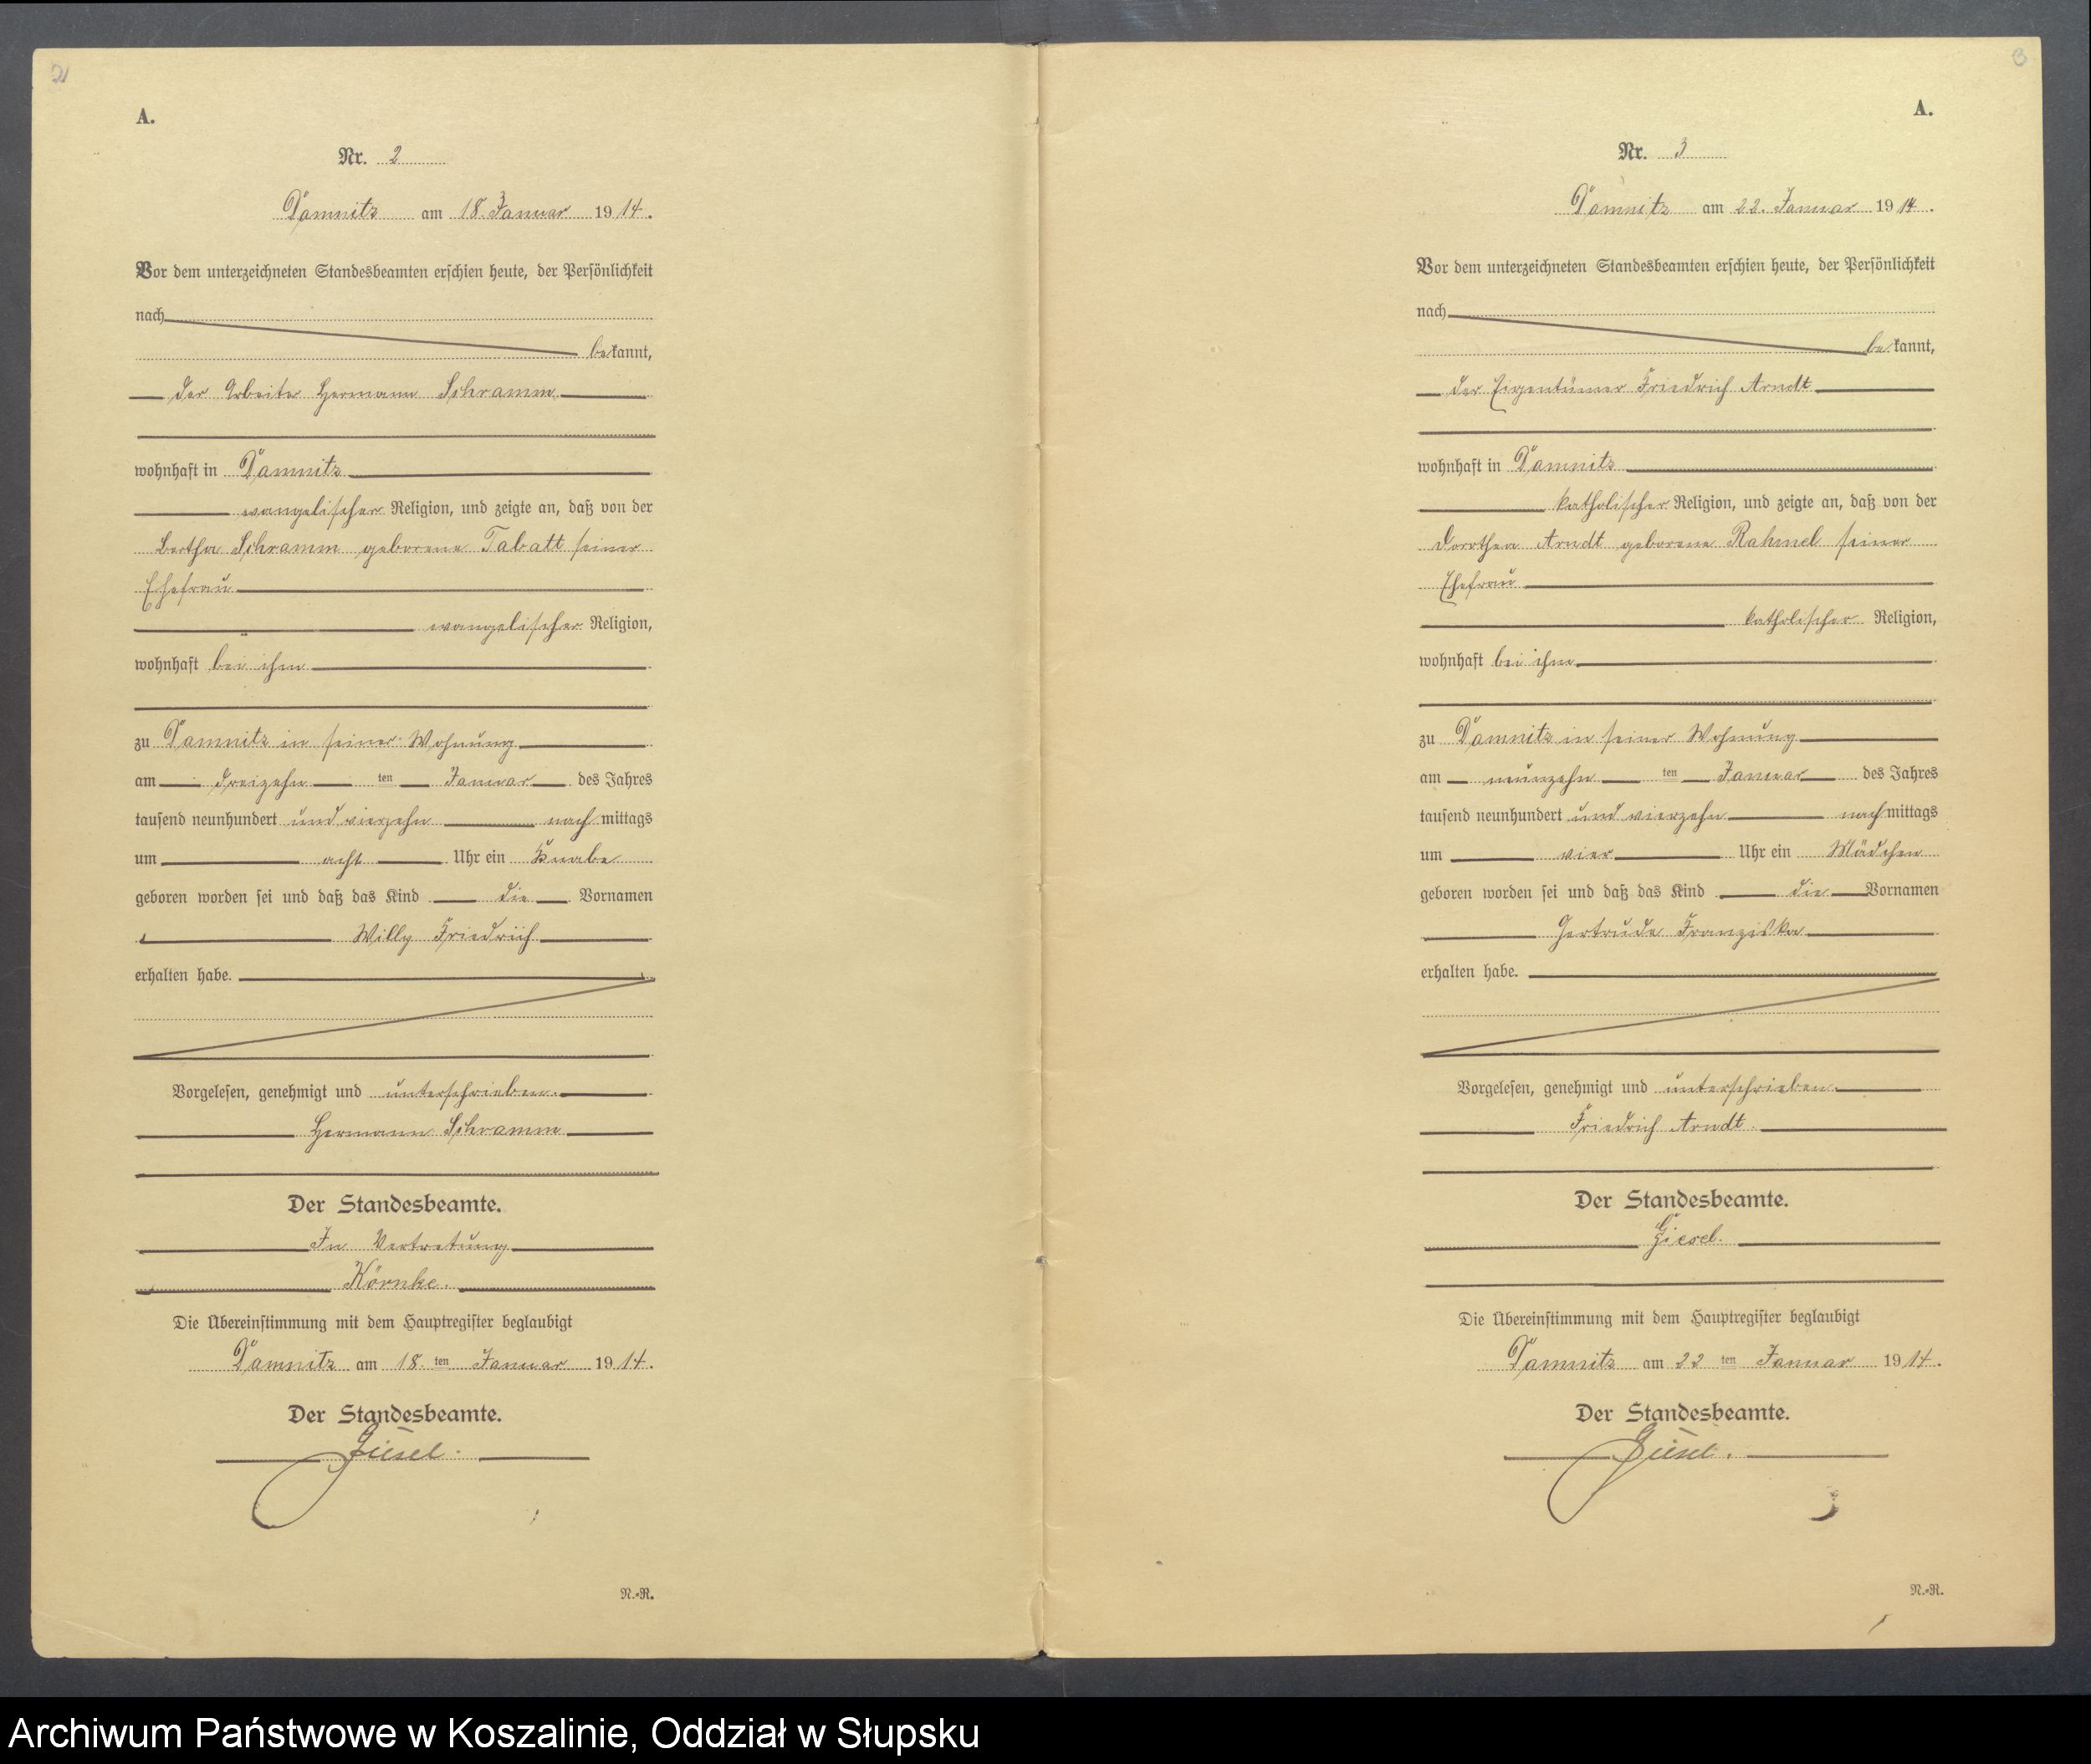 21
A.
Nr. 2
Damnitz am 18. Januar 1914.
Vor dem unterzeichneten Standesbeamten erschien heute, der Persönlichkeit
nach
bekannt,
der Arbeiter Hermann Schramm
wohnhaft in Damnitz
evangelischer Religion, und zeigte an, daß von der
Bertha Schramm geborene Tabatt seiner
Ehefrau
evangelischer Religion,
wohnhaft bei ihm
zu Damnitz in seiner Wohnung
am dreizehn ten Januar des Jahres
tausend neunhundert und vierzehn nachmittags
um acht Uhr ein Knabe
geboren worden sei und daß das Kind die Vornamen
Willy Friedrich
erhalten habe.
Vorgelesen, genehmigt und unterschrieben.
Hermann Schramm
Der Standesbeamte.
In Vertretung
Körnke.
Die Übereinstimmung mit dem Hauptregister beglaubigt
Damnitz am 18. ten Januar 1914.
Der Standesbeamte.
Giesel.
N.-R.
3
A.
Nr. 3
Damnitz am 22. Januar 1914.
Vor dem unterzeichneten Standesbeamten erschien heute, der Persönlichkeit
nach
bekannt,
der Eigentümer Friedrich Arndt
wohnhaft in Damnitz
katholischer Religion, und zeigte an, daß von der
Dorothea Arndt geborene Rahmel seiner
Ehefrau
katholischer Religion,
wohnhaft bei ihm
zu Damnitz in seiner Wohnung
am neunzehn ten Januar des Jahres
tausend neunhundert und vierzehn nachmittags
um vier Uhr ein Mädchen
geboren worden sei und daß das Kind die Vornamen
Gertrude Franziska
erhalten habe.
Vorgelesen, genehmigt und unterschrieben.
Friedrich Arndt
Der Standesbeamte.
Giesel.
Die Übereinstimmung mit dem Hauptregister beglaubigt
Damnitz am 22 ten Januar 1914.
Der Standesbeamte.
Giesel.
N.-R.
Archiwum Państwowe w Koszalinie, Oddział w Słupsku